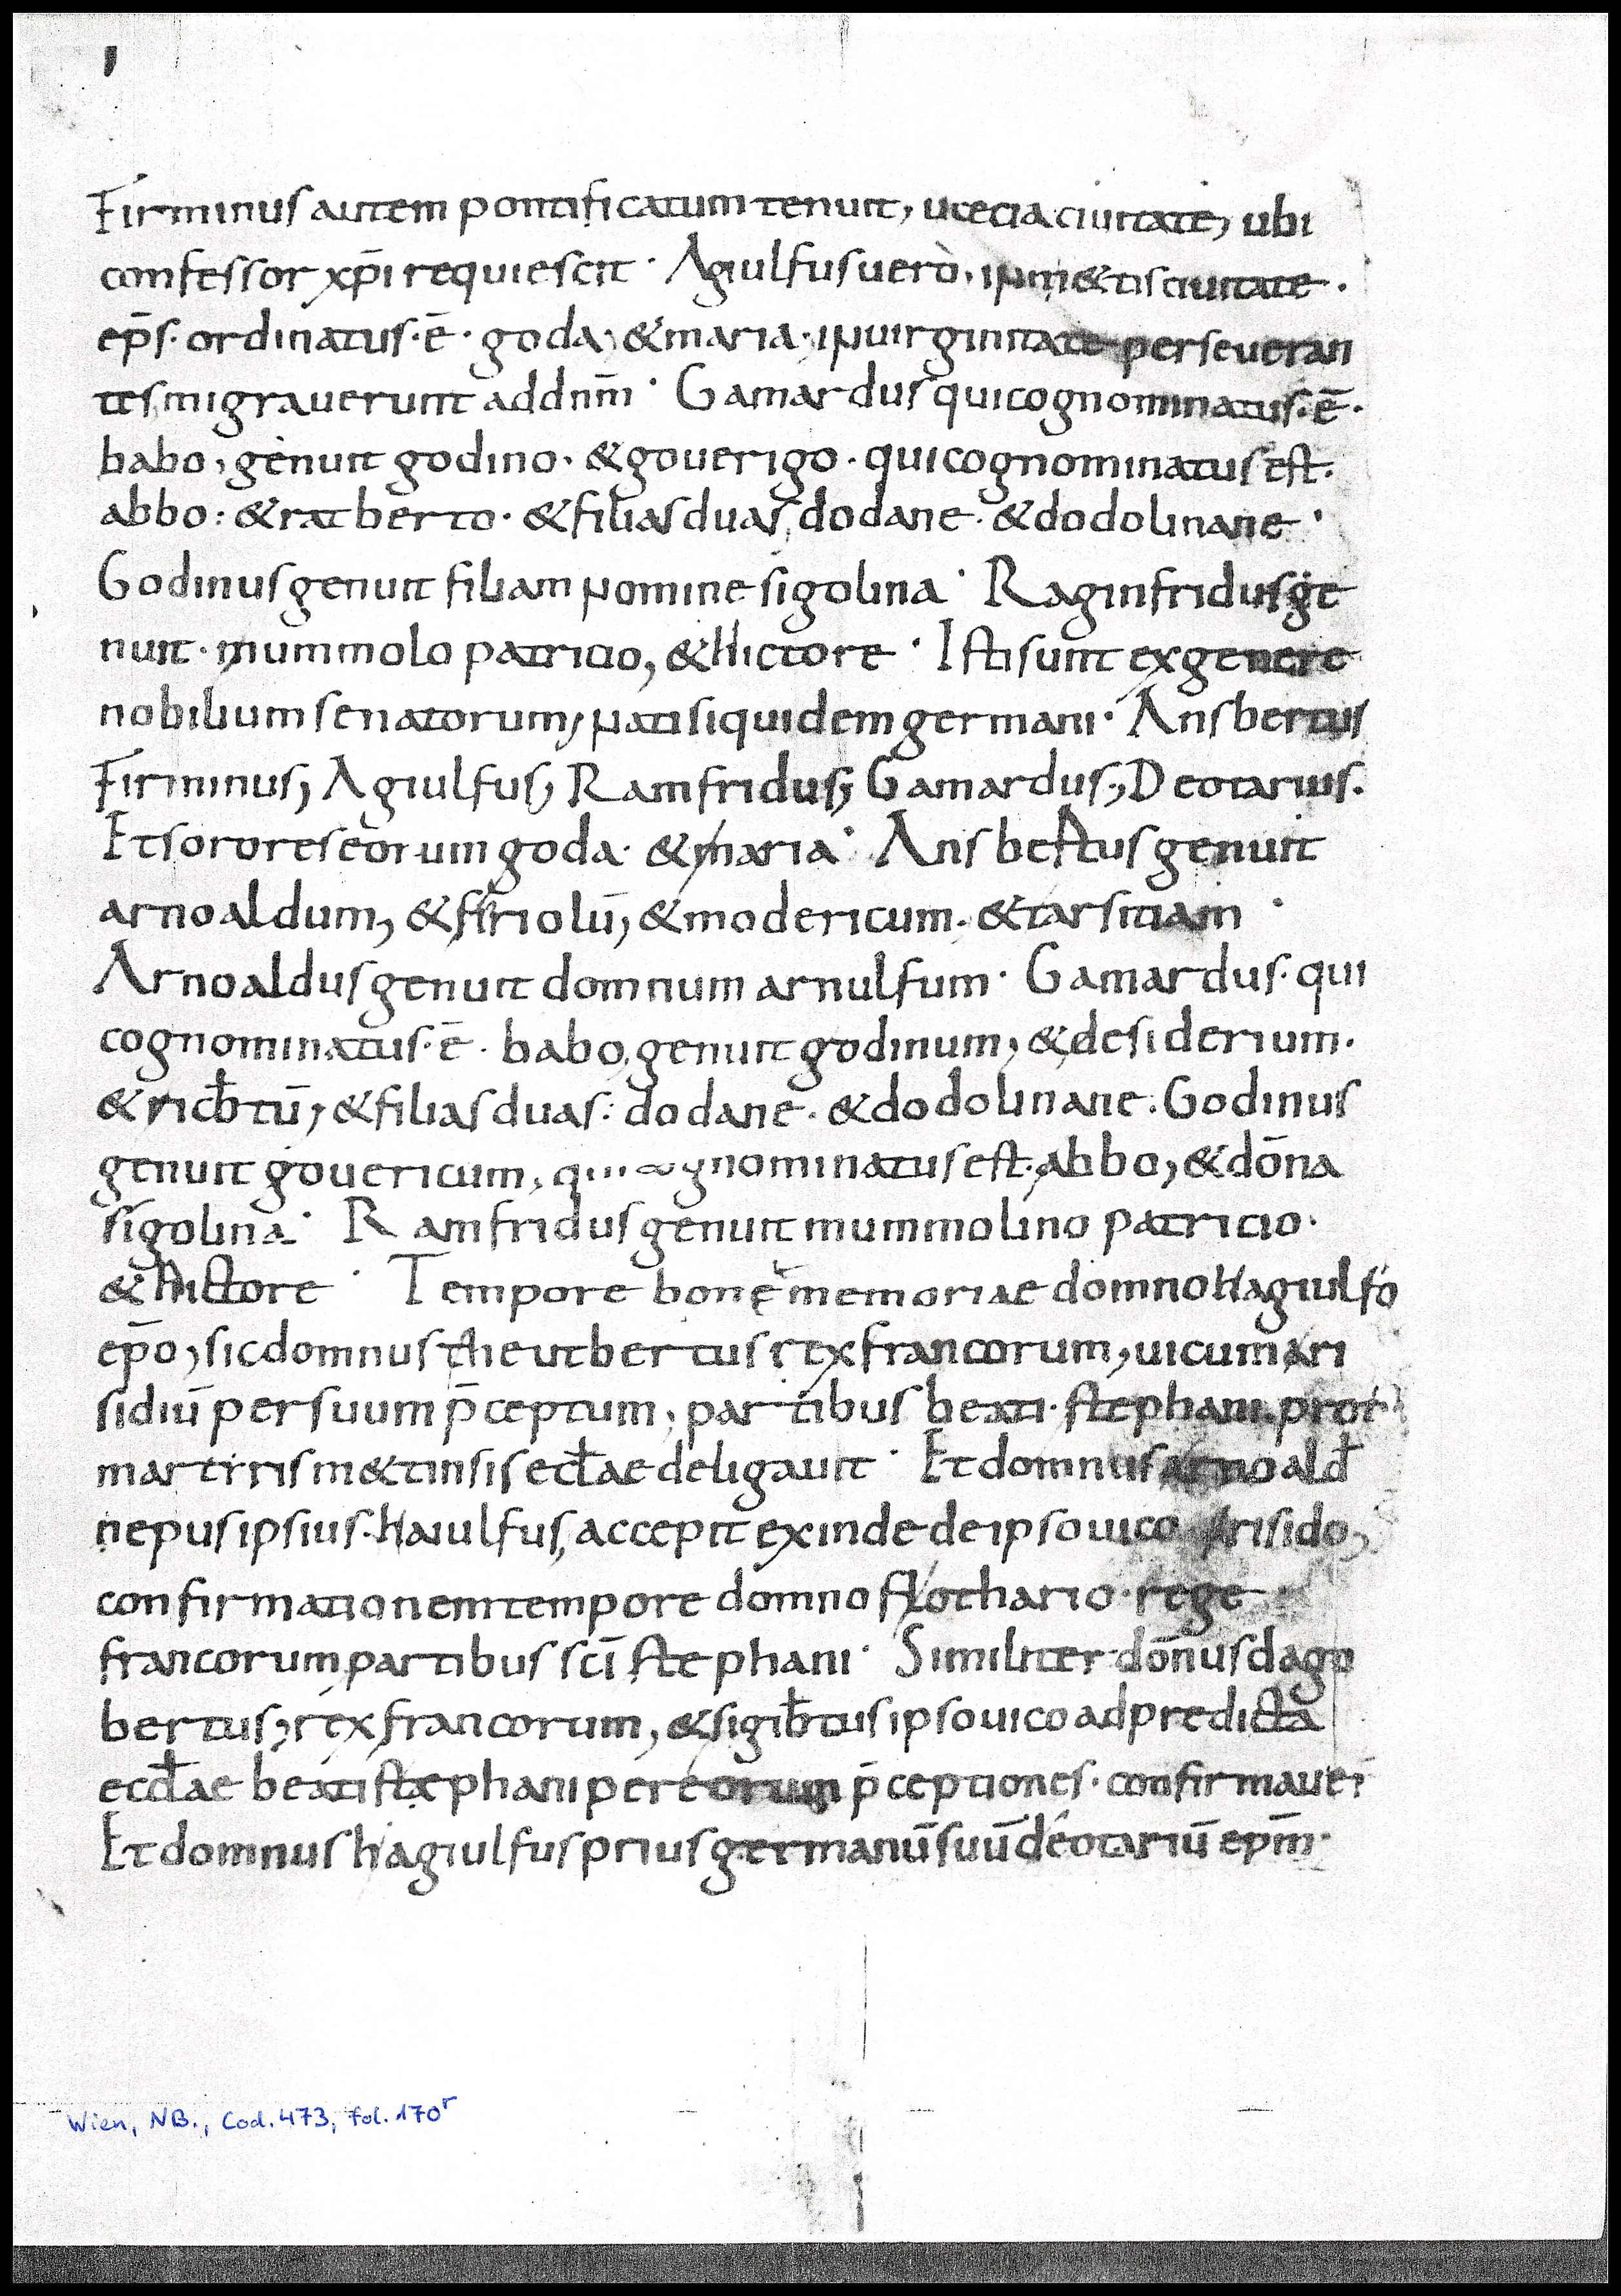 Firminus autem pontificatum tenuit, ucecia ciuitate, ubi
confessor xp̄i requiescit · Agiulfus uero, in m&tis ciuitate ·
ep̄s · ordinatus · ē · goda, & maria · in uirginitate perseueran
tes migrauerunt ad dnm̄ · Gamardus qui cognominatus · ē ·
babo, genuit godino · & gouerigo · qui cognominatus est ·
abbo : & ratberto · & filias duas, dodane · & dodolinane ·
Godinus genuit filiam nomine sigolina · Raginfridus ge
nuit · mummolo patricio, & hictore · Isti sunt ex genere
nobilium senatorum, nati siquidem germani · Ansbertus
Firminus, Agiulfus, Ramfridus, Gamardus, Deotarius ·
Et sorores eorum goda · & maria · Ansbertus genuit
arnoaldum, & firiolū, & modericum · & tarsitiam ·
Arnoaldus genuit domnum arnulfum · Gamardus · qui
cognominatus · ē · babo, genuit godinum, & desiderium ·
& ricƀtū, & filias duas : dodane · & dodolinane · Godinus
genuit gouericum, qui cognominatus est · abbo, & dōna
sigolina · Ramfridus genuit mummolino patricio ·
& hictore · Tempore bonę memoriae domno hagiulfo
ep̄o, sic domnus theutbertus rex francorum, uicum ari
sidiū per suum p̄ceptum, partibus beati · stephani · prot
martiris m&tinsis eccƚae deligauit · Et domnus arnoalđ
nepus ipsius · haiulfus, accepit exinde de ipso uico arisido,
confirmationem tempore domno flothario · rege
francorum partibus scī stephani · Similiter dōnus dago
bertus, rex francorum, & sigiƀtus ipso uico ad predicta
eccƚae beati stephani per eorum p̄ceptiones · confirmauer̄
Et domnus hagiulfus prius germanū suū deotariū epm̄ ·
Wien, NB., Cod. 473, fol. 170r